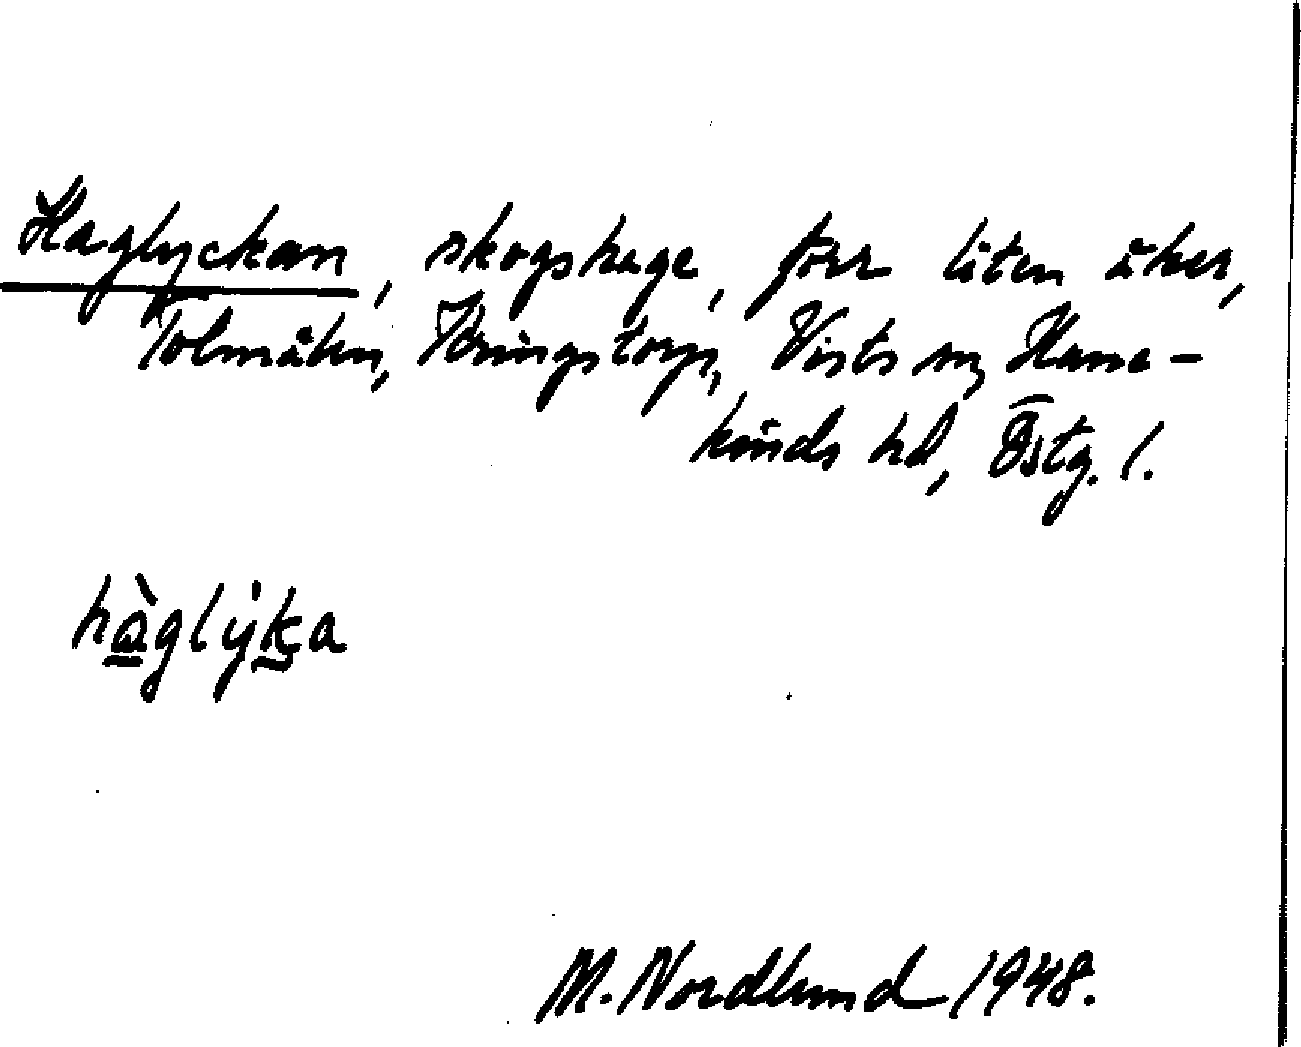 Haglyckan, skogshage, förr liten åker,
Tolmåken, Kringstorp, Vists sn, Hane-
kinds hd, Östg. l.
hàglýka
M. Nordlund 1948.